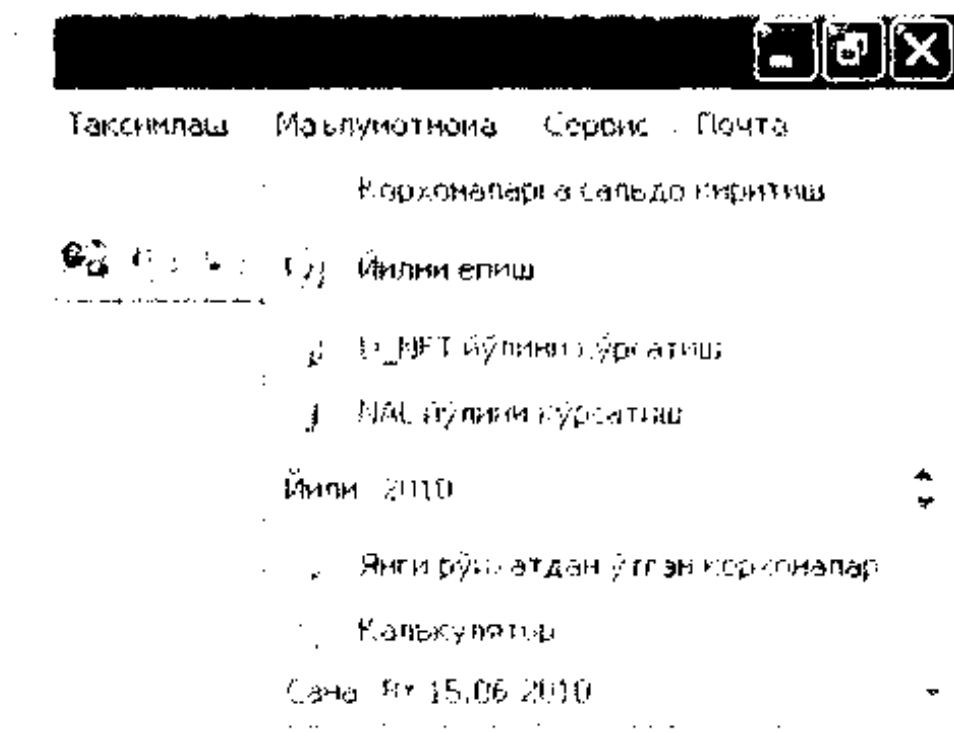 Таксимлаш Маълумотнома Сервис Почта
Корхоналарга сальдо киритиш
Йилни епиш
йўлини кўрсатиш
NAL йўлини кўрсатиш
Йили 2010
Янги рўйхатдан ўтган корхоналар
Калькулятор
Сана Вт 15.06.2010